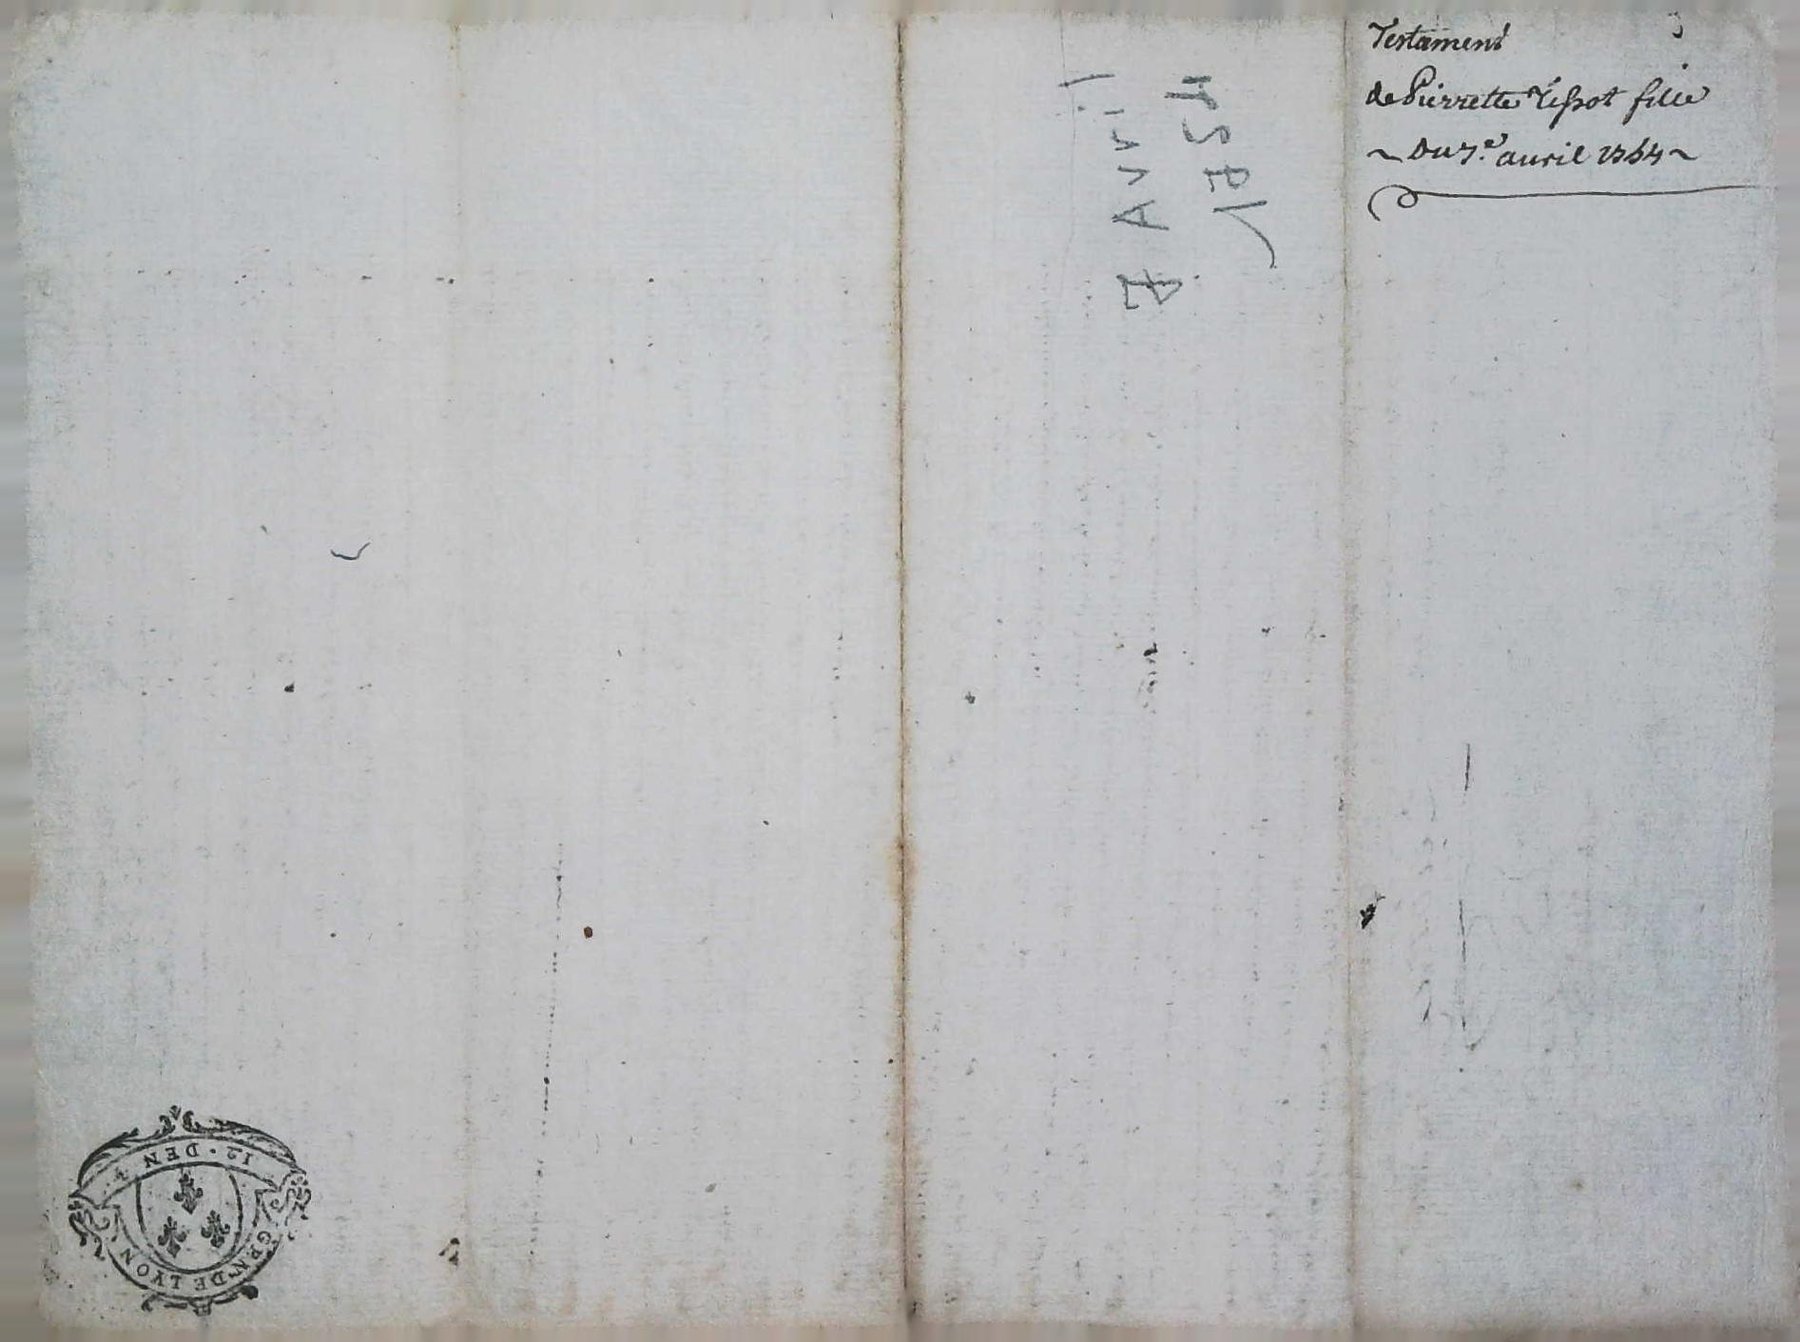 Testament
de Pierrette Tissot fille
~ Du 7.e avril 1754 ~
7 Avril
1754
12 · DEN
GEN. DE LYON